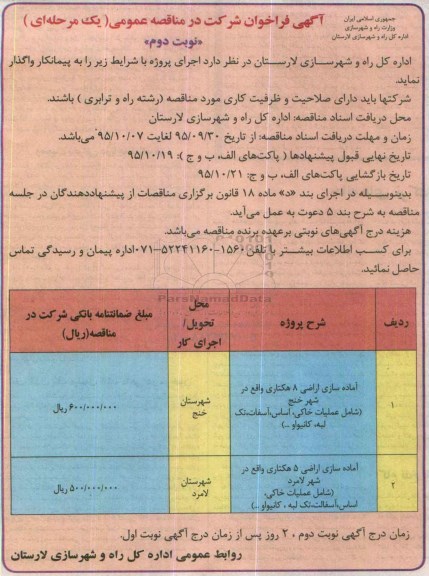 جمهوری اسلامی ایران
وزارت راه و شهرسازی
اداره کل راه و شهرسازی لارستان
آگهی فراخوان شرکت در مناقصه عمومی( یک مرحله‌ای )
«نوبت دوم»
اداره کل راه و شهرسـازی لارسـتان در نظر دارد اجرای پروژه با شرایط زیر را به پیمانکار واگذار
نماید.
شرکتها باید دارای صلاحیت و ظرفیت کاری مورد مناقصه (رشته راه و ترابری ) باشند.
محل دریافت اسناد مناقصه: اداره کل راه و شهرسازی لارستان
زمان و مهلت دریافت اسناد مناقصه: از تاریخ ۹۵/۰۹/۳۰ لغایت ۹۵/۱۰/۰۷ می‌باشد.
تاریخ نهایی قبول پیشنهادها ( پاکت‌های الف، ب و ج ): ۹۵/۱۰/۱۹
تاریخ بازگشایی پاکت‌های الف، ب و ج: ۹۵/۱۰/۲۱
بدینوسـیله در اجرای بند «د» ماده ۱۸ قانون برگزاری مناقصات از پیشنهاددهندگان در جلسه
مناقصه به شرح بند ۵ دعوت به عمل می‌آید.
هزینه درج آگهی‌های نوبتی برعهده برنده مناقصه می‌باشد.
برای کسـب اطلاعات بیشـتر با تلفن ۱۵۶۰-۵۲۲۴۱۱۶۰-۰۷۱ اداره پیمان و رسیدگی تماس
حاصل نمائید.
ParsNamadData
ردیف
شرح پروژه
محل تحویل/ اجرای کار
مبلغ ضمانتنامه بانکی شرکت در مناقصه(ریال)
۱
آماده سازی اراضی ۸ هکتاری واقع در
شهر خنج
(شامل عملیات خاکی، اساس،آسفات،تک
لبه، کانیواو ...)
شهرستان
خنج
۶۰۰/۰۰۰/۰۰۰ ریال
۲
آماده سازی اراضی ۵ هکتاری واقع در
شهر لامرد
(شامل عملیات خاکی،
اساس،آسفالت،تک لبه ، کانیواو ...)
شهرستان
لامرد
۵۰۰/۰۰۰/۰۰۰ ریال
زمان درج آگهی نوبت دوم ، ۲ روز پس از زمان درج آگهی نوبت اول.
روابط عمومی اداره کل راه و شهرسازی لارستان